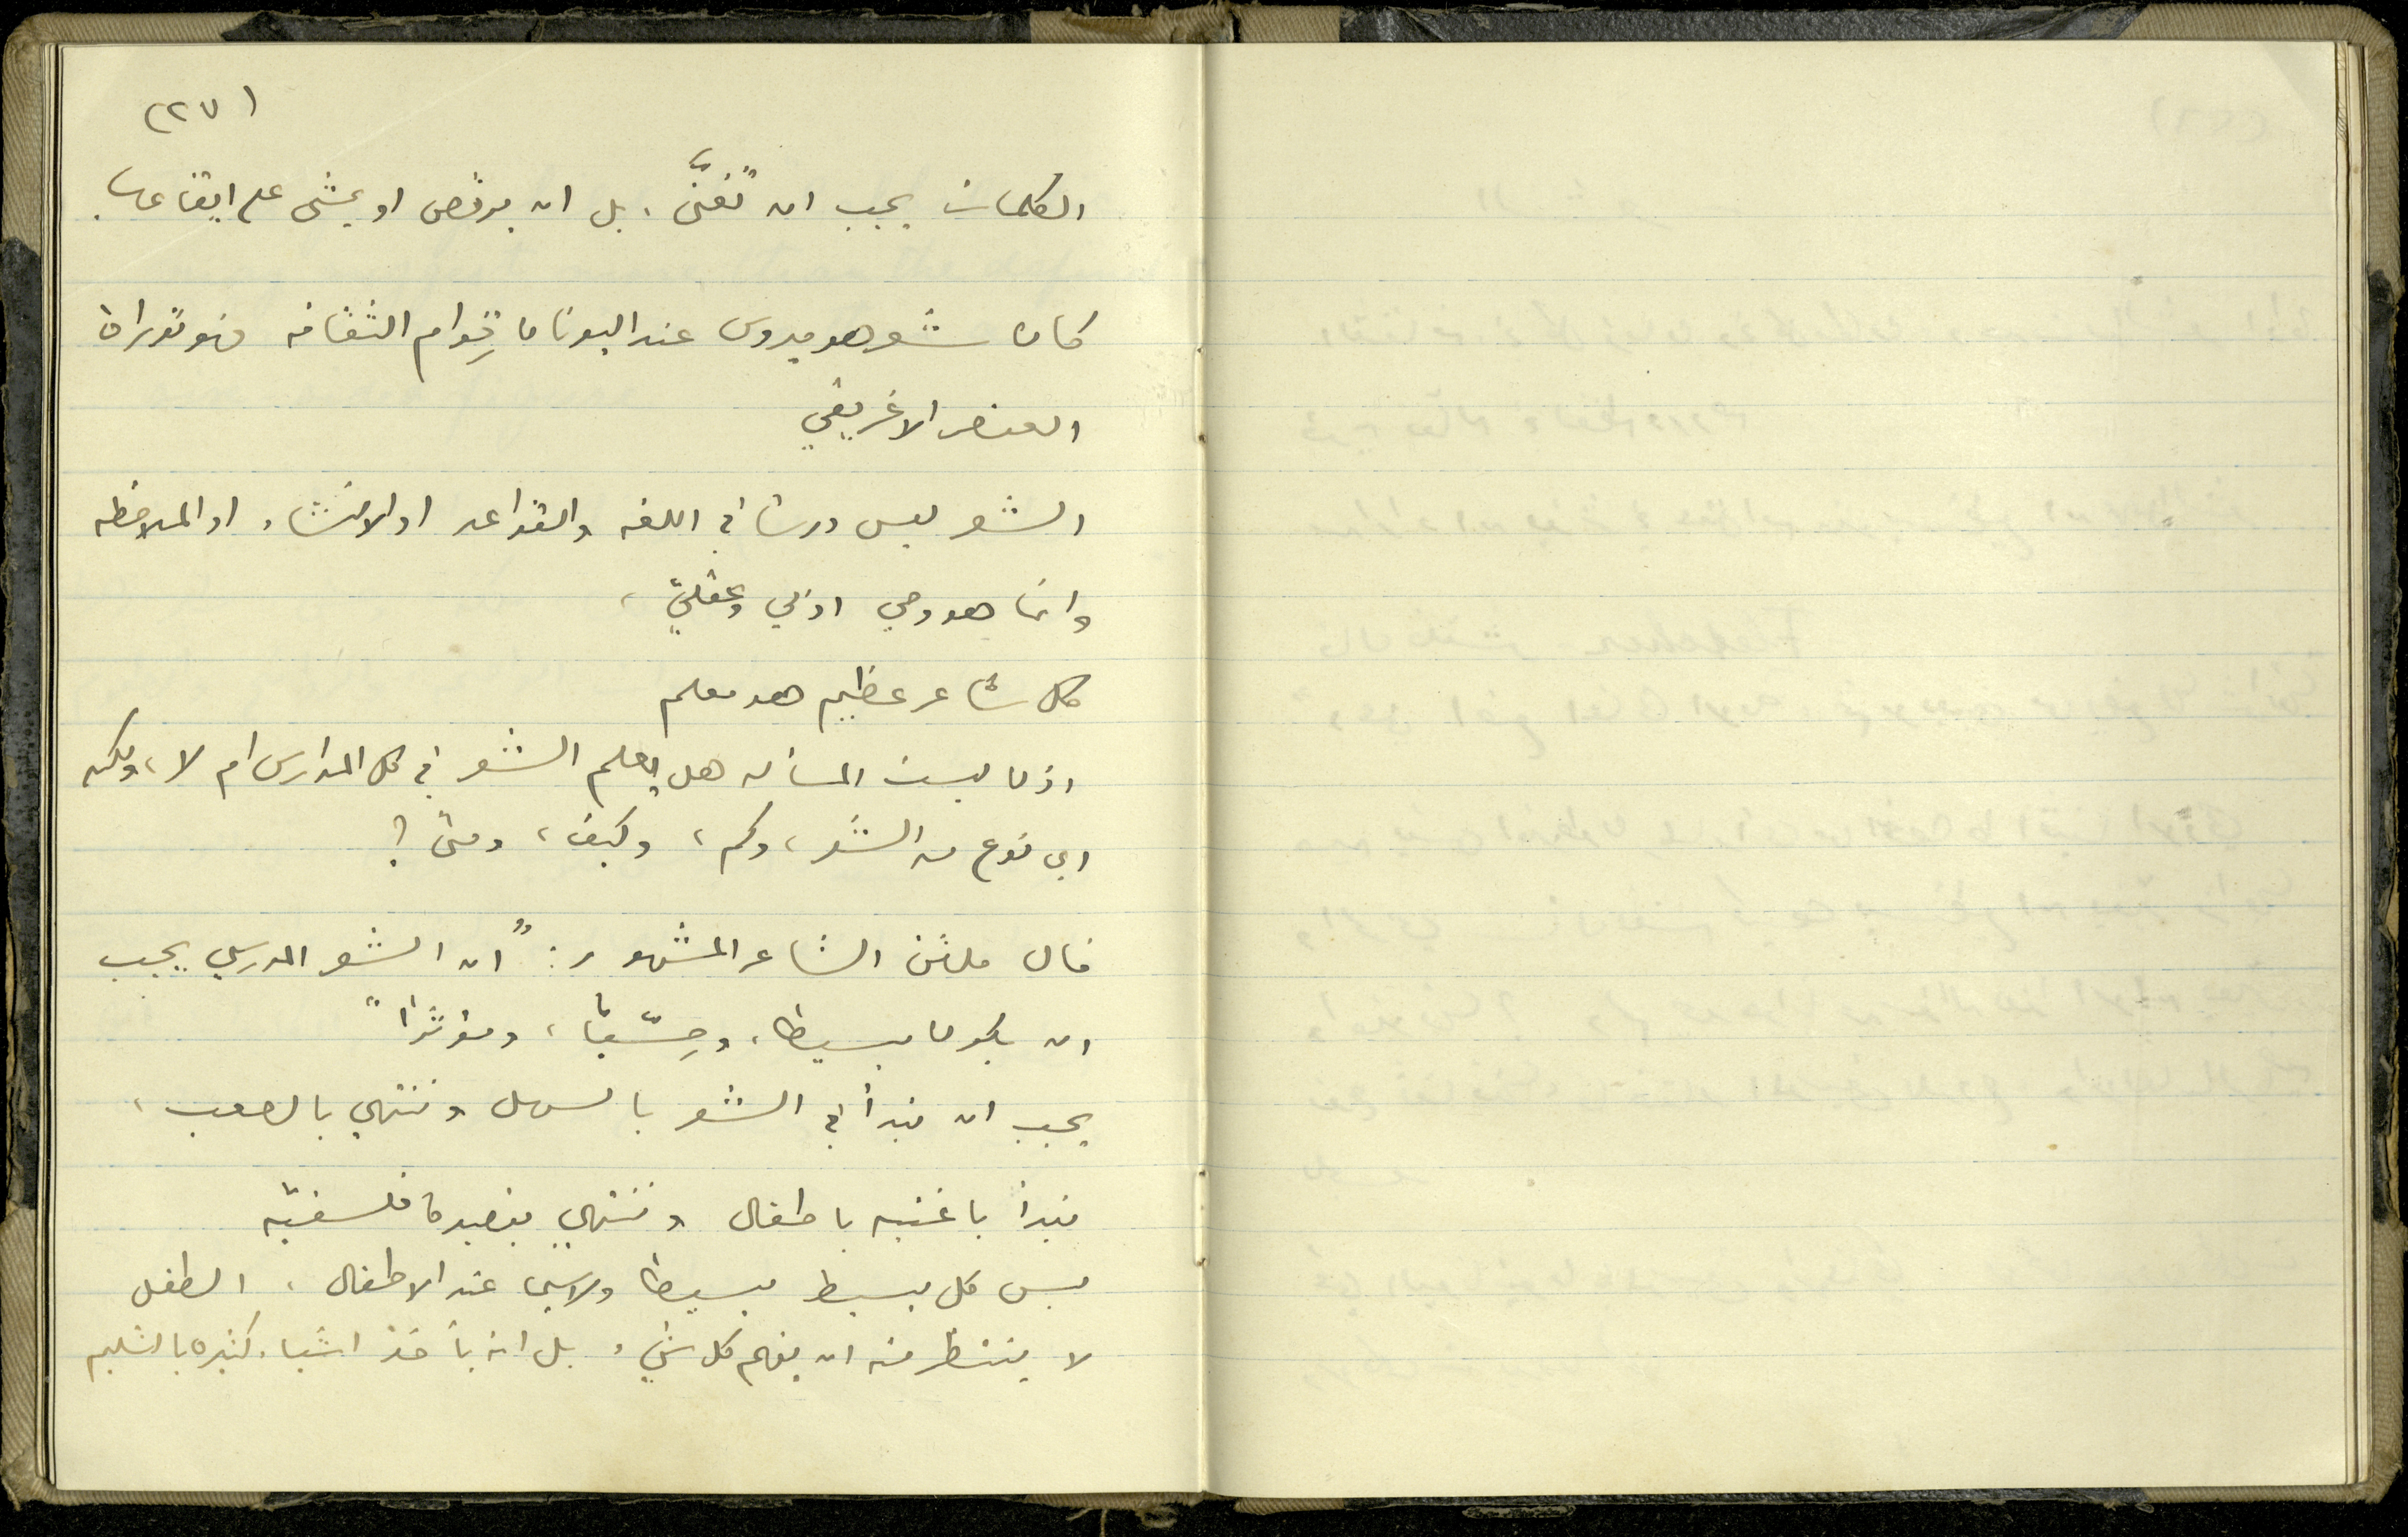 (٢٧)
الكلمات يجب ان تُغنَّى، بل ان يرقص او يمشى على ايقاعها.
كان شعر هوميروس عند اليونان قِوام الثقافه فهو توراة
العنصر الاغريقي
الشعر ليس درسًا في اللغه والقواعد او الانشاء او الملاحظه
وانما هو وحي اذني وعقليّ،
كل شاعر عظيم هو معلم
اذن ليست المسأله هل يعلم الشعر في كل المدارس ام لا، ولكن
اي نوع من الشعر، وكم، وكيف، ومتى؟
قال ملتن الشاعر المشهور: "ان الشعر المدرسي يجب
ان يكون بسيطا، وحِسّيًّا، ومؤثرًا"
يجب ان نبدأ في الشعر بالسهل وننتهي بالصعب،
نبدأ باغنيه باطفال وننتهي بقصيدة فلسفيّه
ليس كل بسيط بسيطا ولاسيما عند الاطفال، الطفل
لا ينتظر منه ان يفهم كل شيء بل انه يأخذ اشياء كثيره بالتسليم